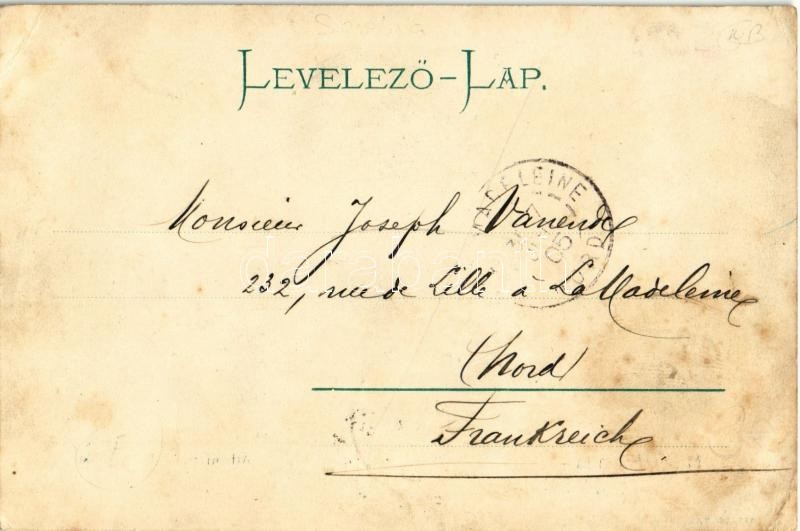 LEVELEZŐ-LAP.
MADELEINE
05
Monsieur Joseph Vanende
232, rue de Lille à La Madeleine
(Nord)
Frankreich